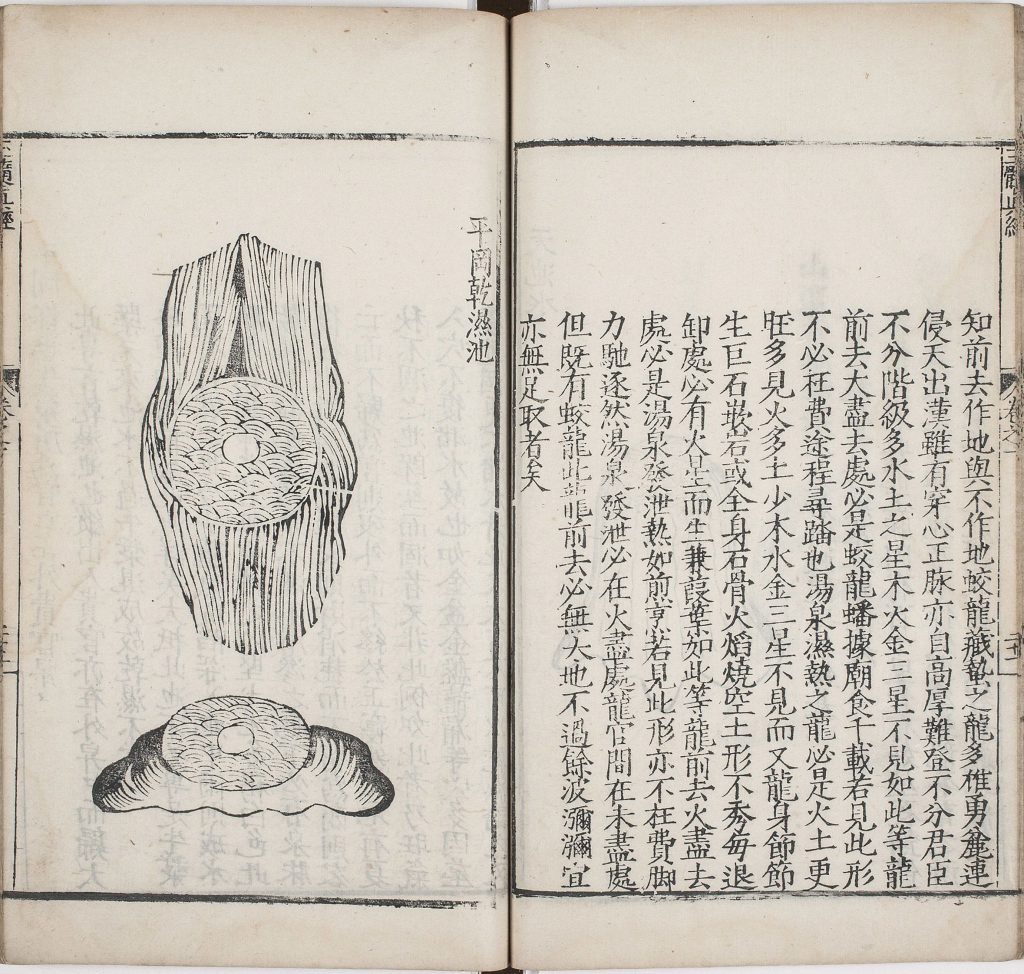 知前去作地與不作地蛟龍藏蟄之龍多稚勇麁連
侵天出漢雖有穿心正脉亦自高厚難登不分君臣
不分階級多水土之星木火金三星不見如此等龍
前去大盡去處必是蛟龍蟠據廟食千載若見此形
不必枉費途程尋踏也湯泉濕熱之龍必是火土更
旺多見火多土少木水金三星不見而又龍身節節
生巨石嵌岩或全身石骨火熖燒空土形不秀每退
卸處必有火星而生兼葭葉如此等龍前去火盡去
處必是湯泉發泄熱如煎烹若見此形亦不枉費脚
力馳逐然湯泉發泄必在火盡處龍官間在未盡處
但既有蛟龍此龍前去必無大地不過餘波瀰瀰宜
亦無足取者矣
平岡乾濕池